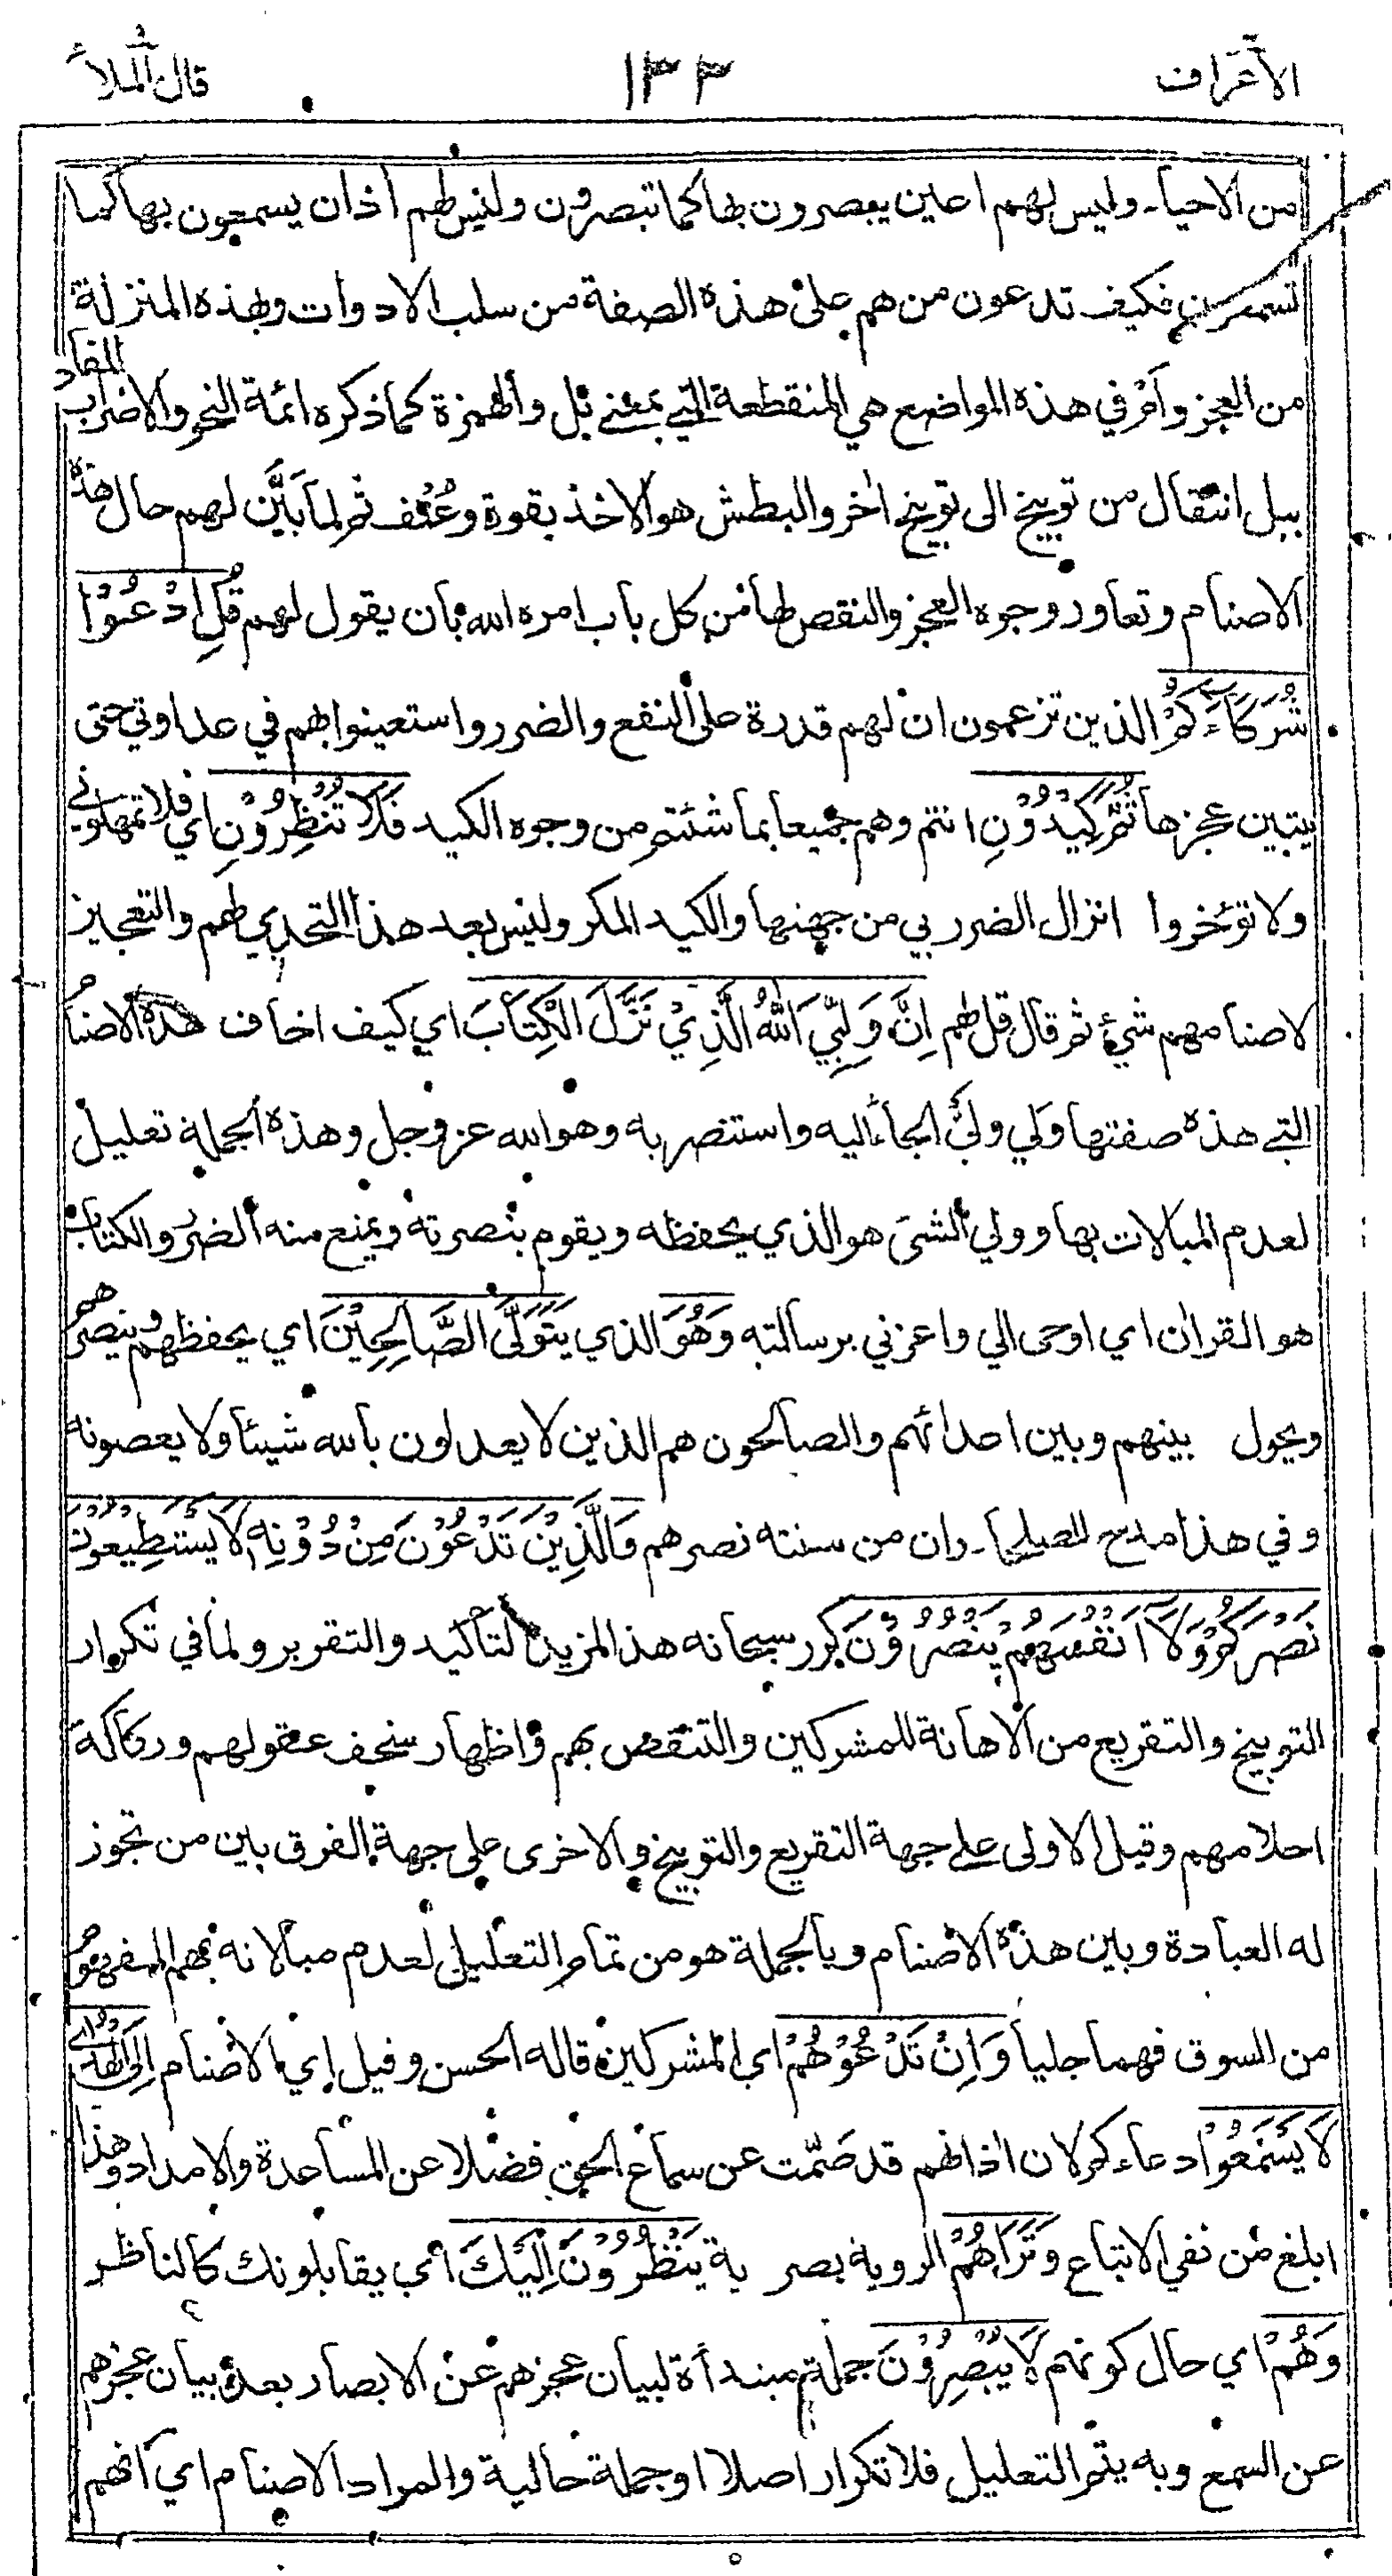 الأعراف ١٣٣ قال الملأ
من الاحياء وليس لهم اعين يبصرون بها كما تبصرون وليس لهم اذان يسمعون بها كما
تسمعون فكيف تدعون من هم على هذه الصفة من سلب الادوات وبهذه المنزلة
من العجز وأم في هذه المواضع هي المنقطعة التي بمعنى بل والهمزة كما ذكره ائمة النحو والاضراب المفاد
ببل انتقال من توبيخ الى توبيخ اخر والبطش هو الاخذ بقوة وعُنف ثم لما بَيَّن لهم حال هذه
الاصنام وتعاور وجوه العجز والنقص لها من كل باب امره الله بان يقول لهم قُلِ ادْعُوْا
شُرَكَآءَكُمْ الذين تزعمون ان لهم قدرة على النفع والضرر واستعينوا بهم في عداوتي حتى
يتبين عجزها ثُمَّ كِيْدُوْنِ انتم وهم جميعا بما شئتم من وجوه الكيد فَلَا تُنْظِرُوْنِ اي فلا تمهلوني
ولا تؤخروا انزال الضرر بي من جهتها والكيد المكر وليس بعد هذا التحدي لهم والتعجيز
لاصنامهم شيء ثم قال قل لهم اِنَّ وَلِيِّيَ اللّٰهُ الَّذِيْ نَزَّلَ الْكِتَابَ اي كيف اخاف هذه الاصنام
التي هذه صفتها ولي وليٌّ الجأ اليه واستنصر به وهو الله عز وجل وهذه الجملة تعليل
لعدم المبالات بها وولي الشئ هو الذي يحفظه ويقوم بنصرته ويمنع منه الضرر والكتاب
هو القرآن اي اوحى الي واعزني برسالته وَهُوَ الذي يَتَوَلَّى الصَّالِحِيْنَ اي يحفظهم وينصرهم
ويحول بينهم وبين اعدائهم والصالحون هم الذين لا يعدلون بالله شيئا ولا يعصونه
وفي هذا مدح للصلحاء وان من سنته نصرهم وَالَّذِيْنَ تَدْعُوْنَ مِنْ دُوْنِهٖ لَا يَسْتَطِيْعُوْنَ
نَصْرَكُمْ وَلَآ اَنْفُسَهُمْ يَنْصُرُوْنَ كرر سبحانه هذا لمزيد التاكيد والتقرير ولما في تكرار
التوبيخ والتقريع من الاهانة للمشركين والتنقص بهم واظهار سخف عقولهم وركاكة
احلامهم وقيل الاولى على جهة التقريع والتوبيخ والاخرى على جهة الفرق بين من تجوز
له العبادة وبين هذه الاصنام وبالجملة هو من تمام التعليل لعدم مبالاته بهم المفهوم
من السوق فهما جليا وَاِنْ تَدْعُوْهُمْ اي المشركين قاله الحسن وقيل اي الاصنام اِلَى الْهُدٰى
لَا يَسْمَعُوْا دعاءكم لان اذانهم قد صَمَّت عن سماع الحق فضلا عن المساعدة والامداد وهذا
ابلغ من نفي الاتباع وَتَرَاهُمْ الروية بصرية يَنْظُرُوْنَ اِلَيْكَ اي يقابلونك كالناظر
وَهُمْ اي حال كونهم لَا يُبْصِرُوْنَ جملة مبتدأة لبيان عجزهم عن الابصار بعد بيان عجزهم
عن السمع وبه يتم التعليل فلا تكرار اصلا او جملة حالية والمراد الاصنام اي انهم